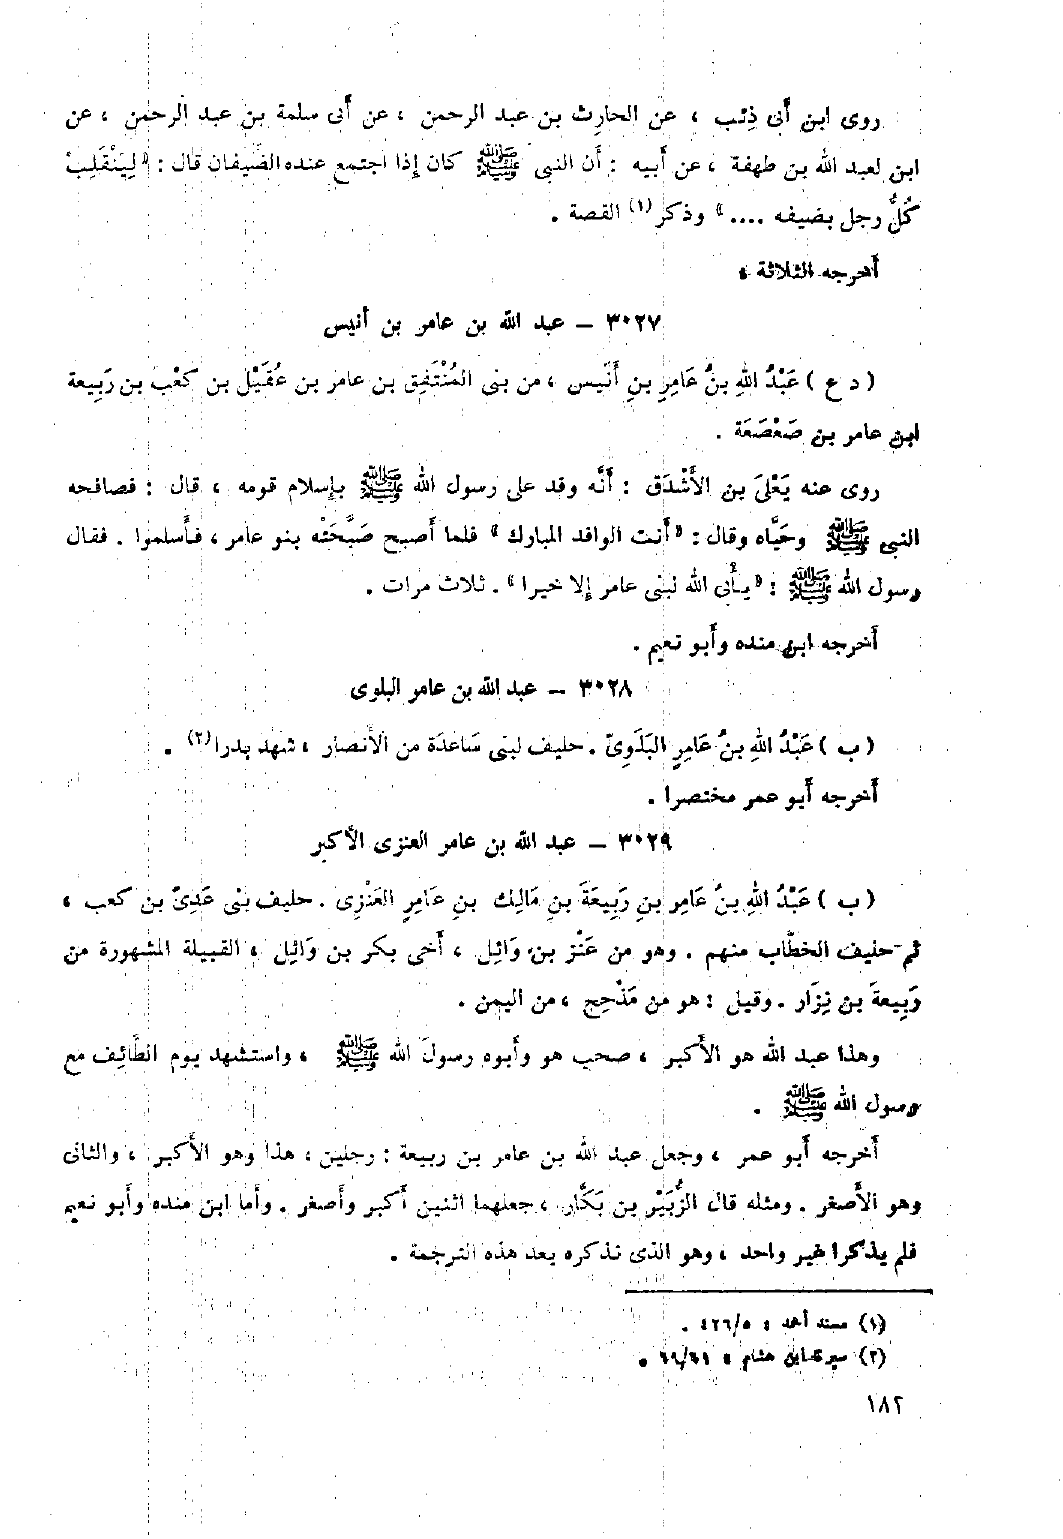 روى ابن أَبى ذِئب ، عن الحارث بن عبد الرحمن ، عن أَبى سلمة بن عبد الرحمن ، عن
ابن لعبد الله بن طهفة ، عن أَبيه : أَن النبى ﷺ كان إِذا اجتمع عنده الضِّيفان قال : « لِيَنْقَلِبْ
كُلُّ رجل بضيفه .... » وذكر (١) القصة .
أَخرجه الثلاثة .
٣٠٢٧ – عبد الله بن عامر بن أنيس
( د ع ) عَبْدُ اللهِ بنُ عَامِرِ بنِ أُنَيس ، من بنى المُنْتَفِق بن عامر بن عُقَيْل بن كَعْب بن رَبِيعة
ابن عامر بن صَعْصَعَة .
روى عنه يَعْلَى بن الأَشْدَق : أَنَّه وفد على رسول الله ﷺ بإِسلام قومه ، قال : فصافحه
النبى ﷺ وحَيَّاه وقال : « أَنت الوافد المبارك » فلما أَصبح صَبَّحَتْه بنو عامر ، فأَسلموا . فقال
رسول الله ﷺ : « يأْبى الله لبنى عامر إِلا خيرا » . ثلاث مرات .
أَخرجه ابن منده وأَبو نعيم .
٣٠٢٨ – عبد الله بن عامر البلوى
( ب ) عَبْدُ اللهِ بنُ عَامِرٍ البَلَوِىّ . حليف لبنى سَاعدَة من الأَنصار ، شهد بدرا (٢) .
أَخرجه أَبو عمر مختصرا .
٣٠٢٩ – عبد الله بن عامر العنزى الأكبر
( ب ) عَبْدُ اللهِ بنُ عَامِر بنِ رَبِيعَةَ بنِ مَالِك بنِ عَامِرٍ العَنْزِى . حليف بنى عَدِىّ بن كعب ،
ثم حليف الخطَّاب منهم . وهو من عَنْز بن وَائِل ، أَخى بكر بن وَائِل ، القبيلة المشهورة من
رَبِيعةَ بن نِزَار . وقيل : هو من مَذْحِج ، من اليمن .
وهذا عبد الله هو الأَكبر ، صحب هو وأَبوه رسولَ الله ﷺ ، واستشهد يوم الطَّائِف مع
رسول الله ﷺ .
أَخرجه أَبو عمر ، وجعل عبد الله بن عامر بن ربيعة : رجلين ، هذا وهو الأَكبر ، والثانى
وهو الأَصغر . ومثله قال الزُّبَيْر بن بَكَّار ، جعلهما اثنين أَكبر وأَصغر . وأَما ابن منده وأَبو نعيم
فلم يذكرا غير واحد ، وهو الذى نذكره بعد هذه الترجمة .
(١) مسند أحمد : ٤٢٦/٥ .
(٢) سيرة ابن هشام :
١٨٢